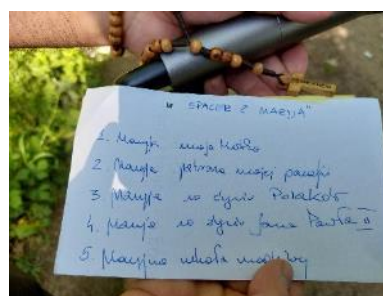 "SPACER Z MARYJĄ"
1. Maryja moja Matka
2. Maryja patronka mojej parafii
3. Maryja w życiu Polaków
4. Maryja w życiu Jana Pawła II
5. Maryjna szkoła modlitwy